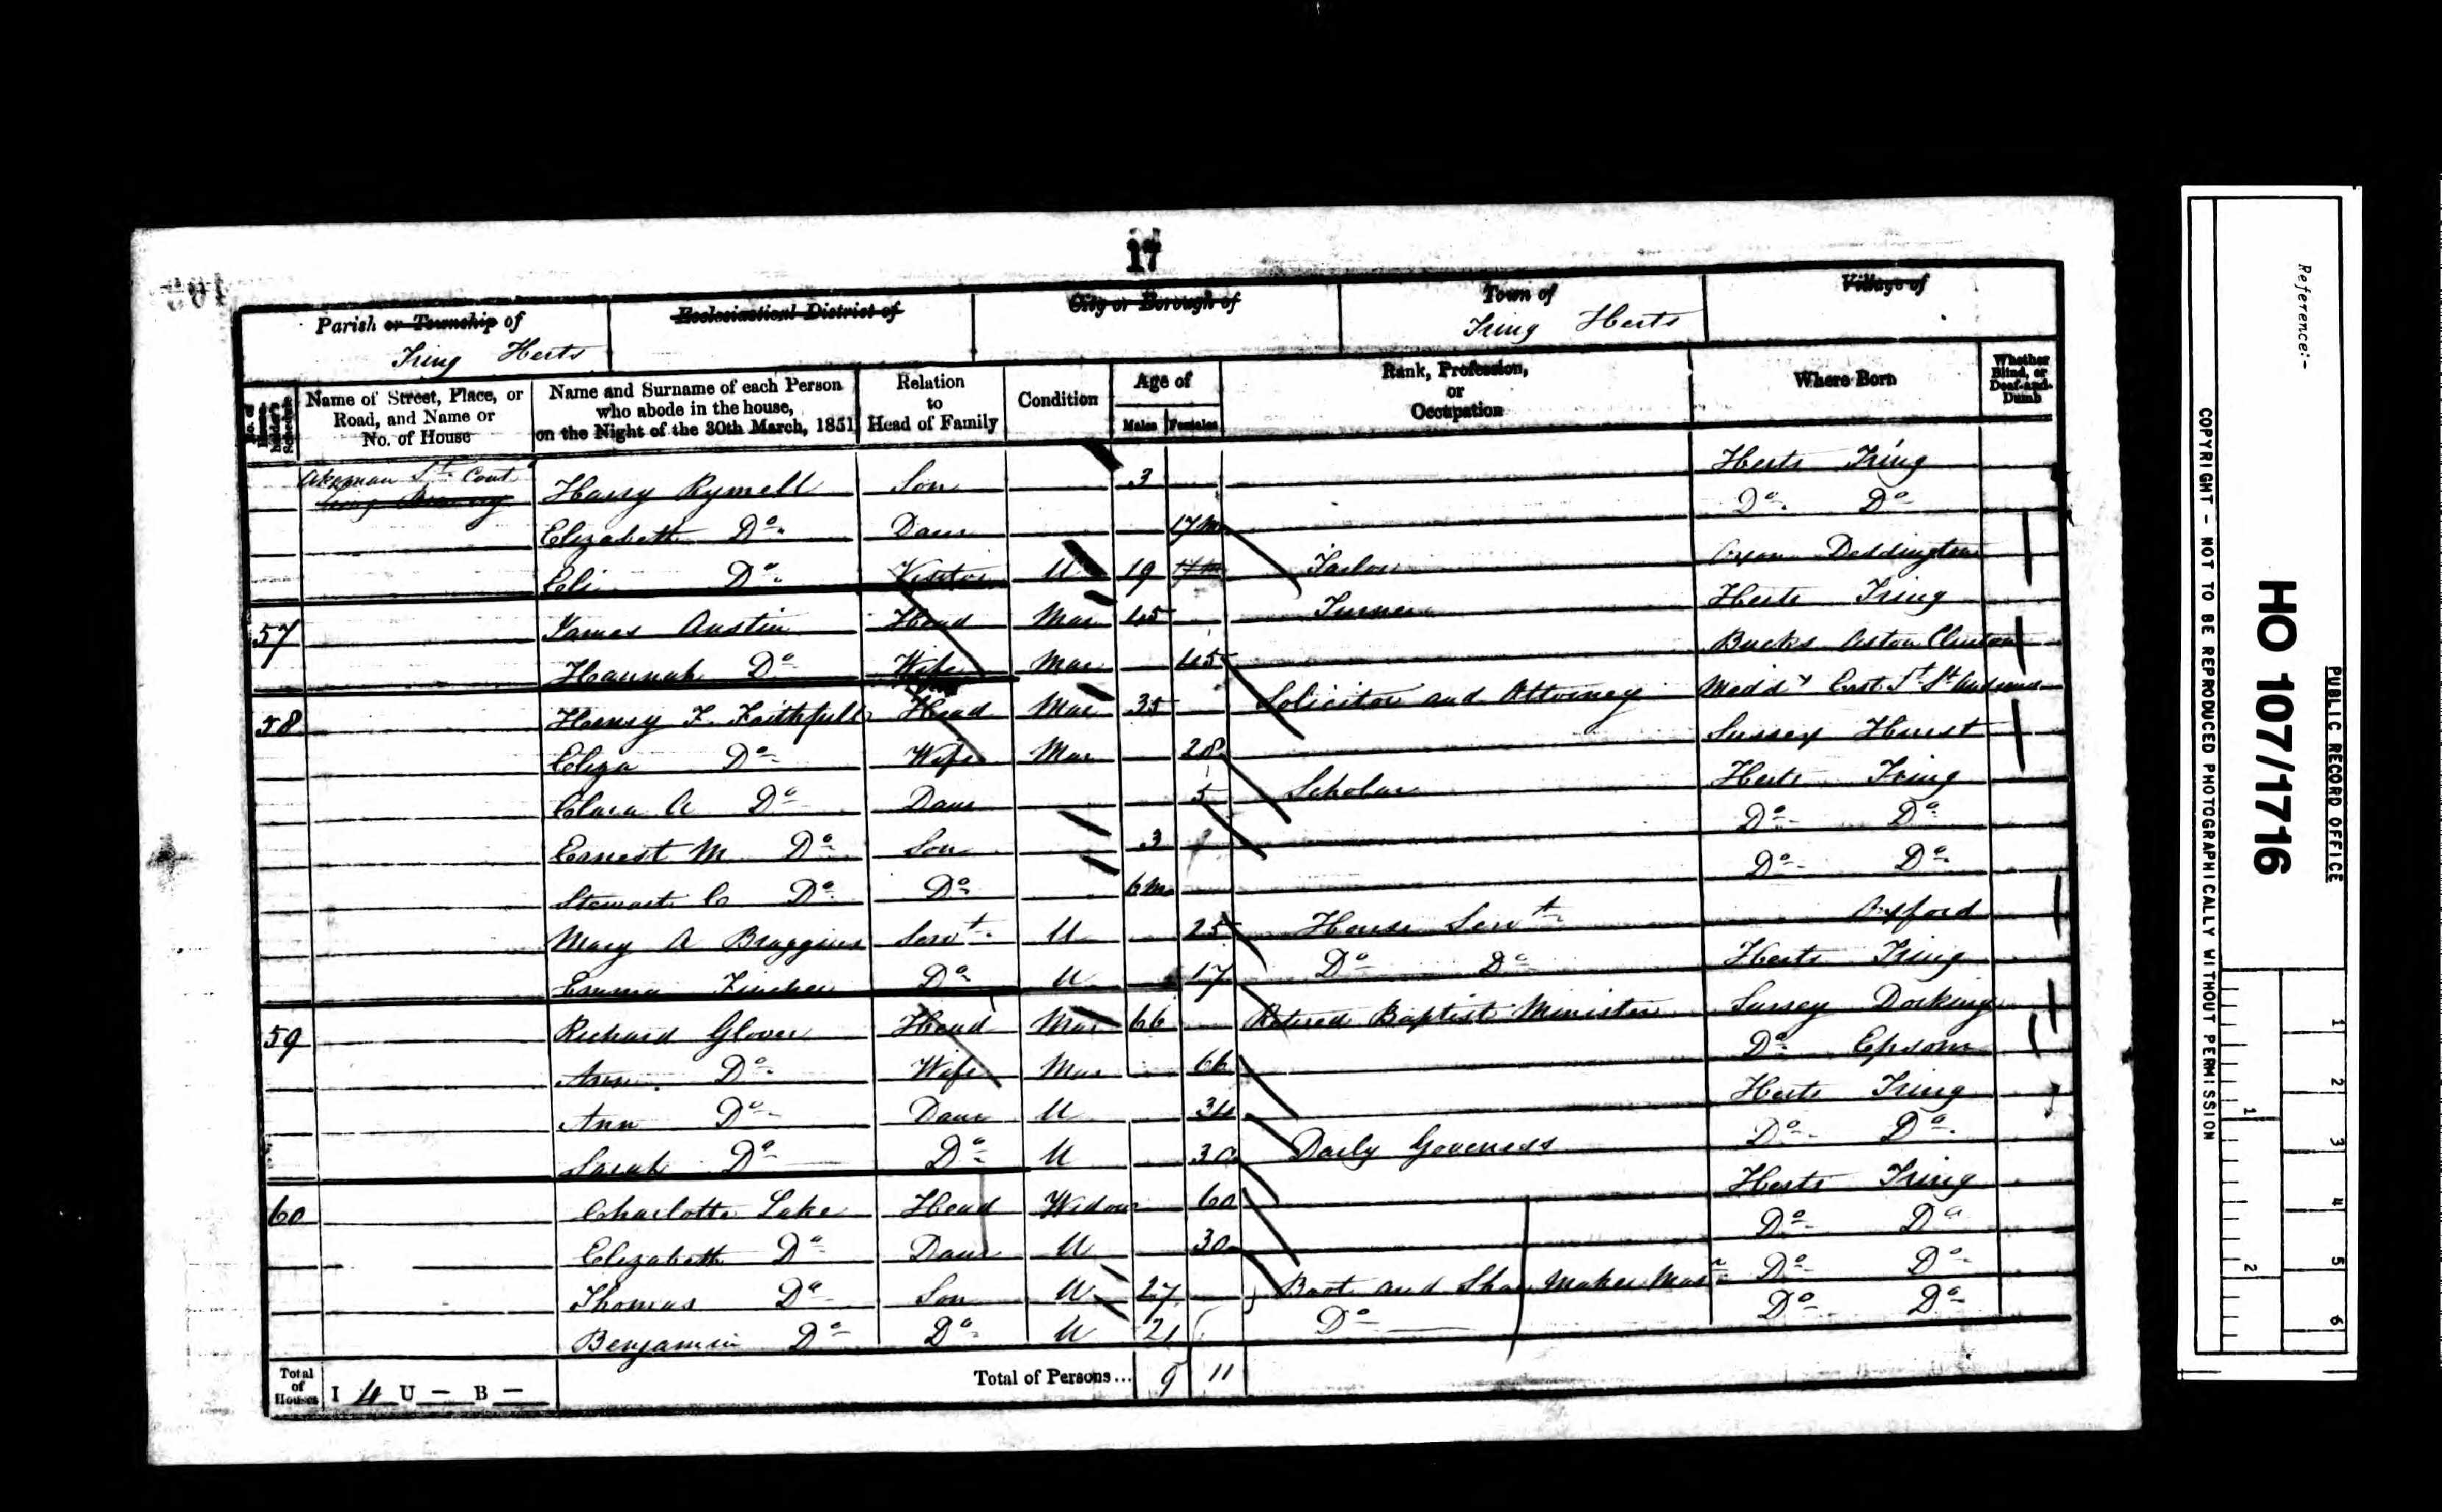 17
Parish or Township of
Tring Herts
Ecclesiastical District of
City or Borough of
Town of
Tring Herts
Village of
No. of House-holder's Schedule
Name of Street, Place, or Road, and Name or No. of House
Name and Surname of each Person who abode in the house, on the Night of the 30th March, 1851
Relation to Head of Family
Condition
Age of
Males Females
Rank, Profession, or Occupation
Where Born
Whether Blind, or Deaf-and-Dumb
Akeman St. Cont
Harry Rymell Son 3 Herts Tring
Elizabeth Do. Daur 17m Do. Do
Eli Do. Visitor U 19 Tailor Oxon Deddington
57 James Austin Head Mar 45 Turner Herts Tring
Hannah Do Wife Mar 45 Bucks Aston Clinton
58 Henry F. Faithfull Head Mar 35 Solicitor and Attorney Middx
Eliza Do Wife Mar 28 Sussex Hurst
Clara A Do Daur 5 Scholar Herts Tring
Ernest M Do Son 3 Do Do
Stewart C Do Do 6m Do Do
Mary A Braggins Servt. U 25 House Servt Oxford
Emma Fincher Do U 17 Do Do Herts Tring
59 Richard Glover Head Mar 66 Retired Baptist Minister Surrey Dorking
Ann Do Wife Mar 66 Do Epsom
Ann Do Daur U 34 Herts Tring
Sarah Do Do U 30 Daily Goveness Do Do
60 Charlotte Lake Head Widow 60 Herts Tring
Elizabeth Do Daur U 30 Do Do
Thomas Do Son U 27 Boot and Shoe Maker Do Do
Benjamin Do Do U 21 Do Do Do
Total of Houses I 4 U — B —
Total of Persons... 9 11
Reference:-
PUBLIC RECORD OFFICE
HO 107/1716
COPYRIGHT - NOT TO BE REPRODUCED PHOTOGRAPHICALLY WITHOUT PERMISSION
1 2 3 4 5 6
1 2